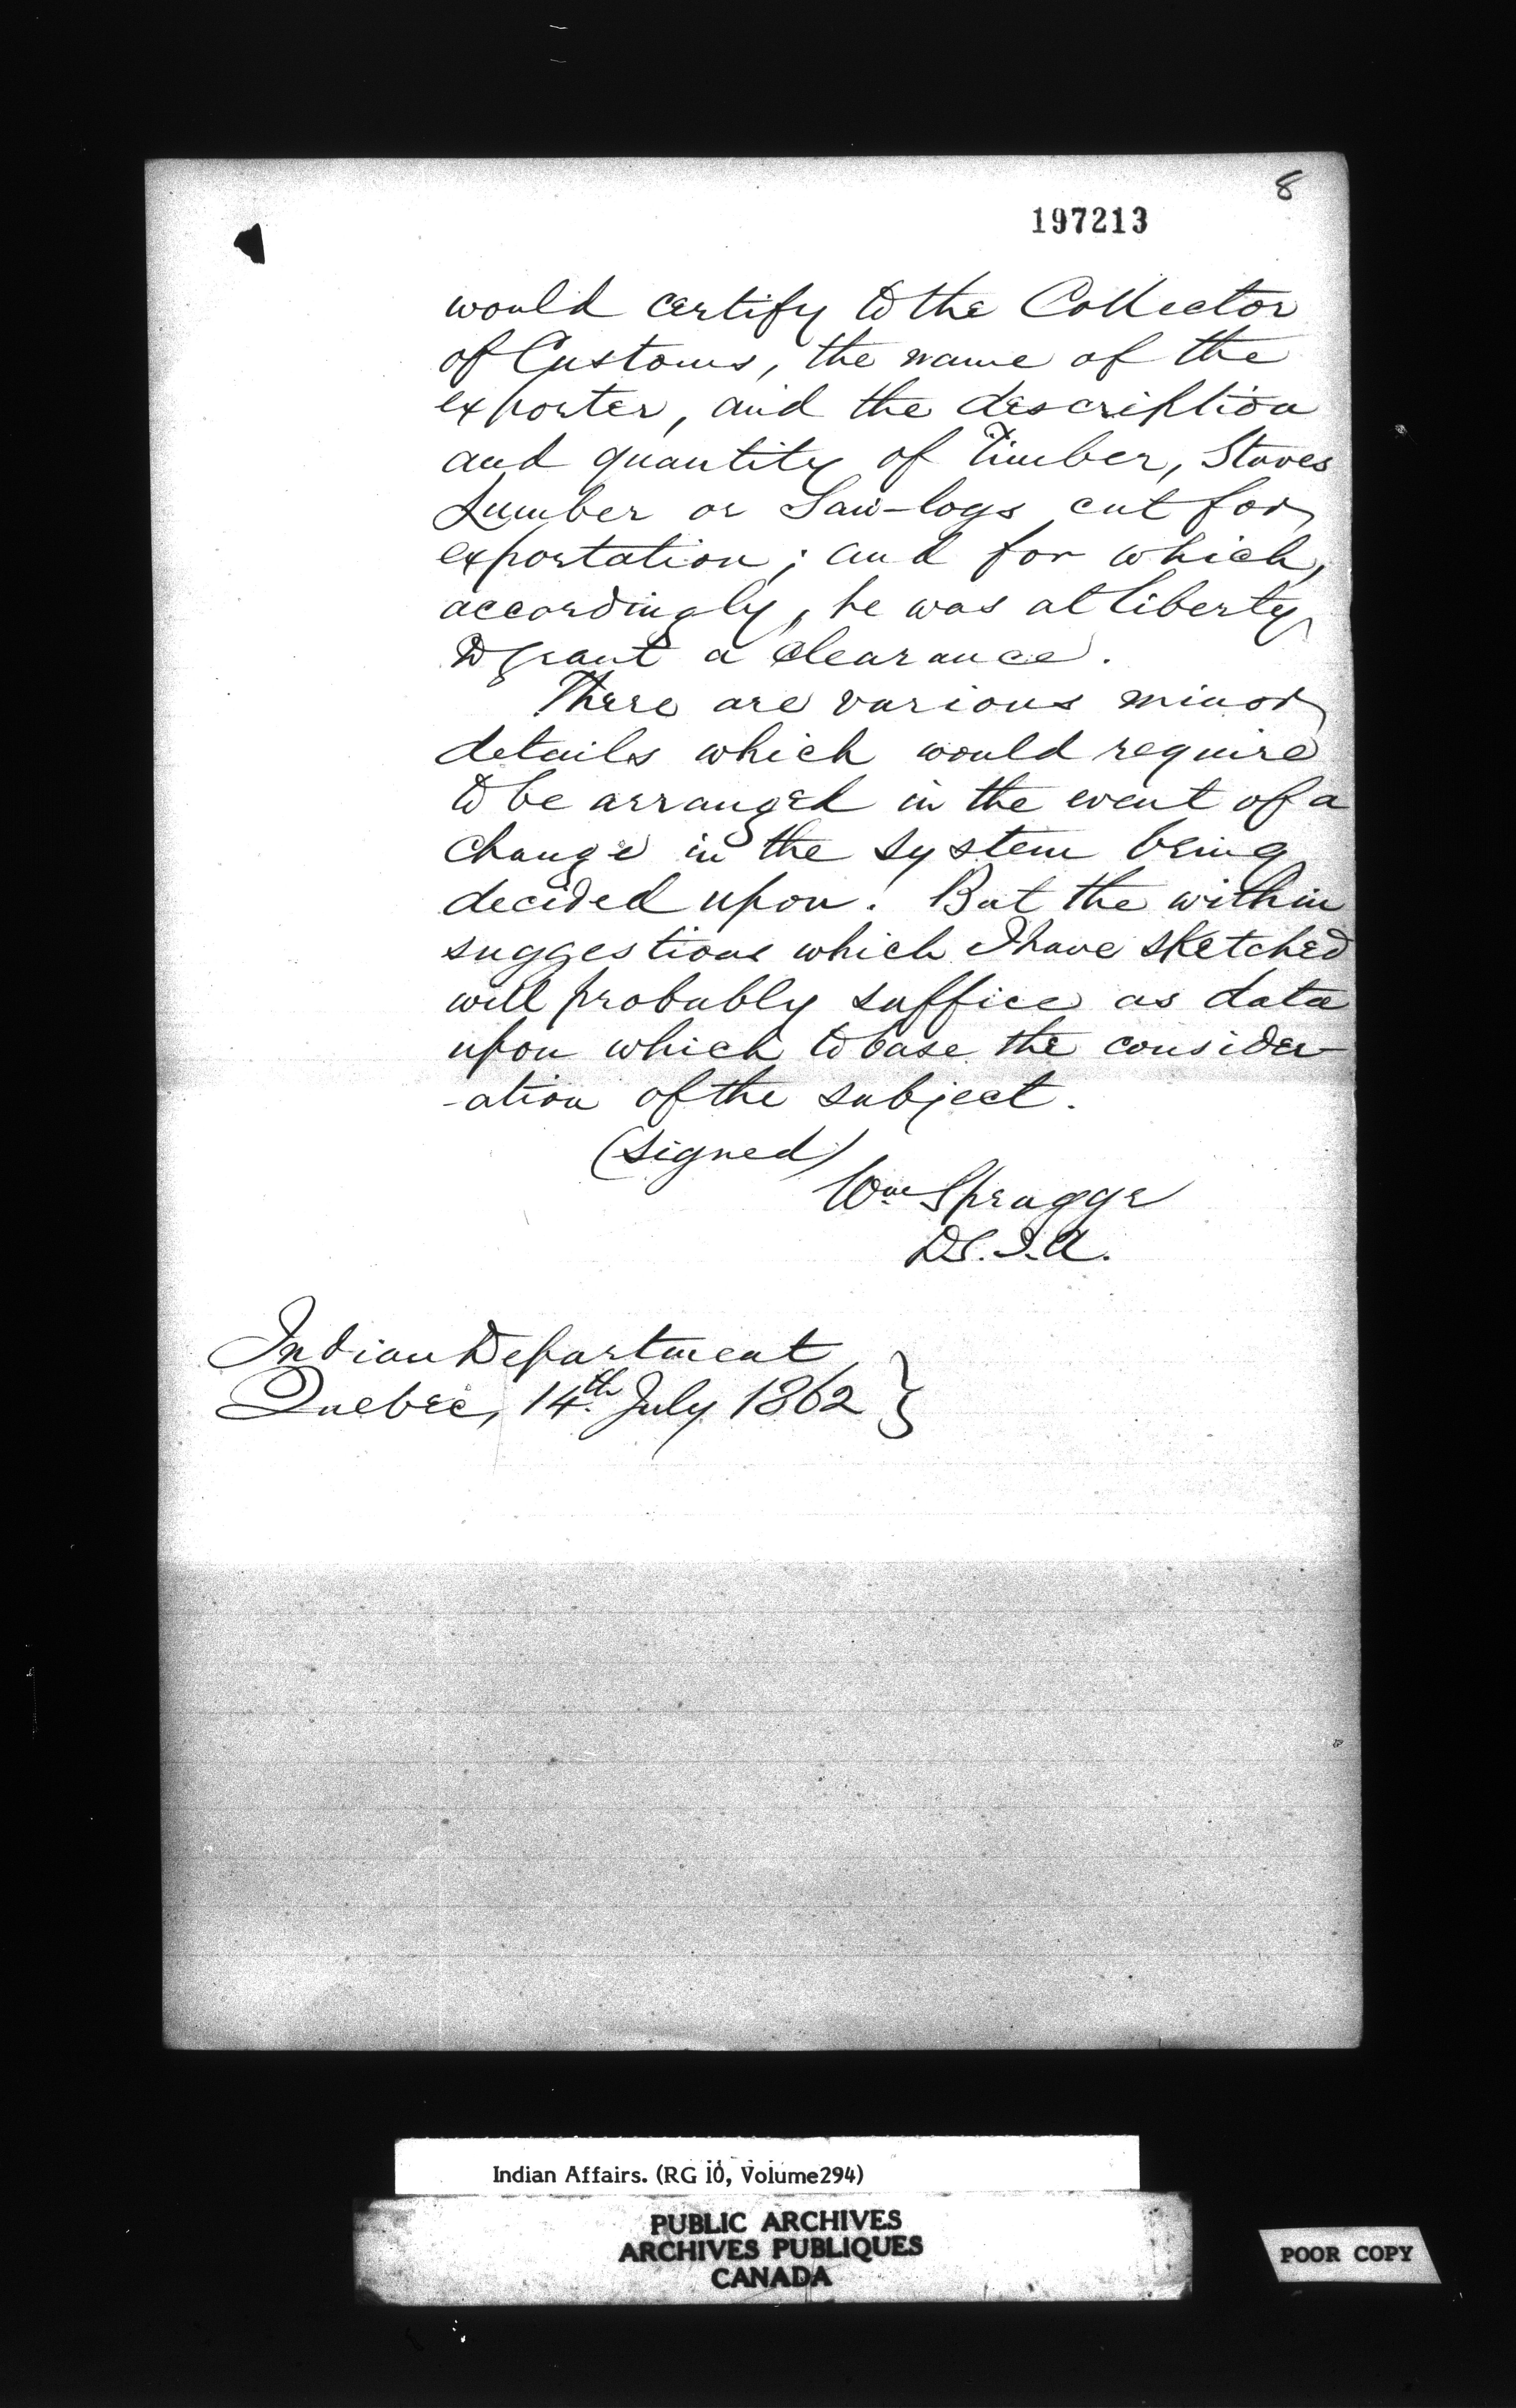 8
197213
would certify to the Collector
of Customs, the name of the
exporter, and the description
and quantity of Timber, Staves
Lumber or Saw-logs cut for
exportation; and for which,
accordingly, he was at liberty
to grant a clearance.
There are various minor
details which would require
to be arranged in the event of a
change in the system being
decided upon. But the within
suggestions which I have sketched
will probably suffice as data
upon which to base the consider-
-ation of the subject.
(signed)
Wm Spragge
D.S.I.A.
Indian Department
Quebec, 14th July 1862 }
Indian Affairs. (RG 10, Volume 294)
PUBLIC ARCHIVES
ARCHIVES PUBLIQUES
CANADA
POOR COPY